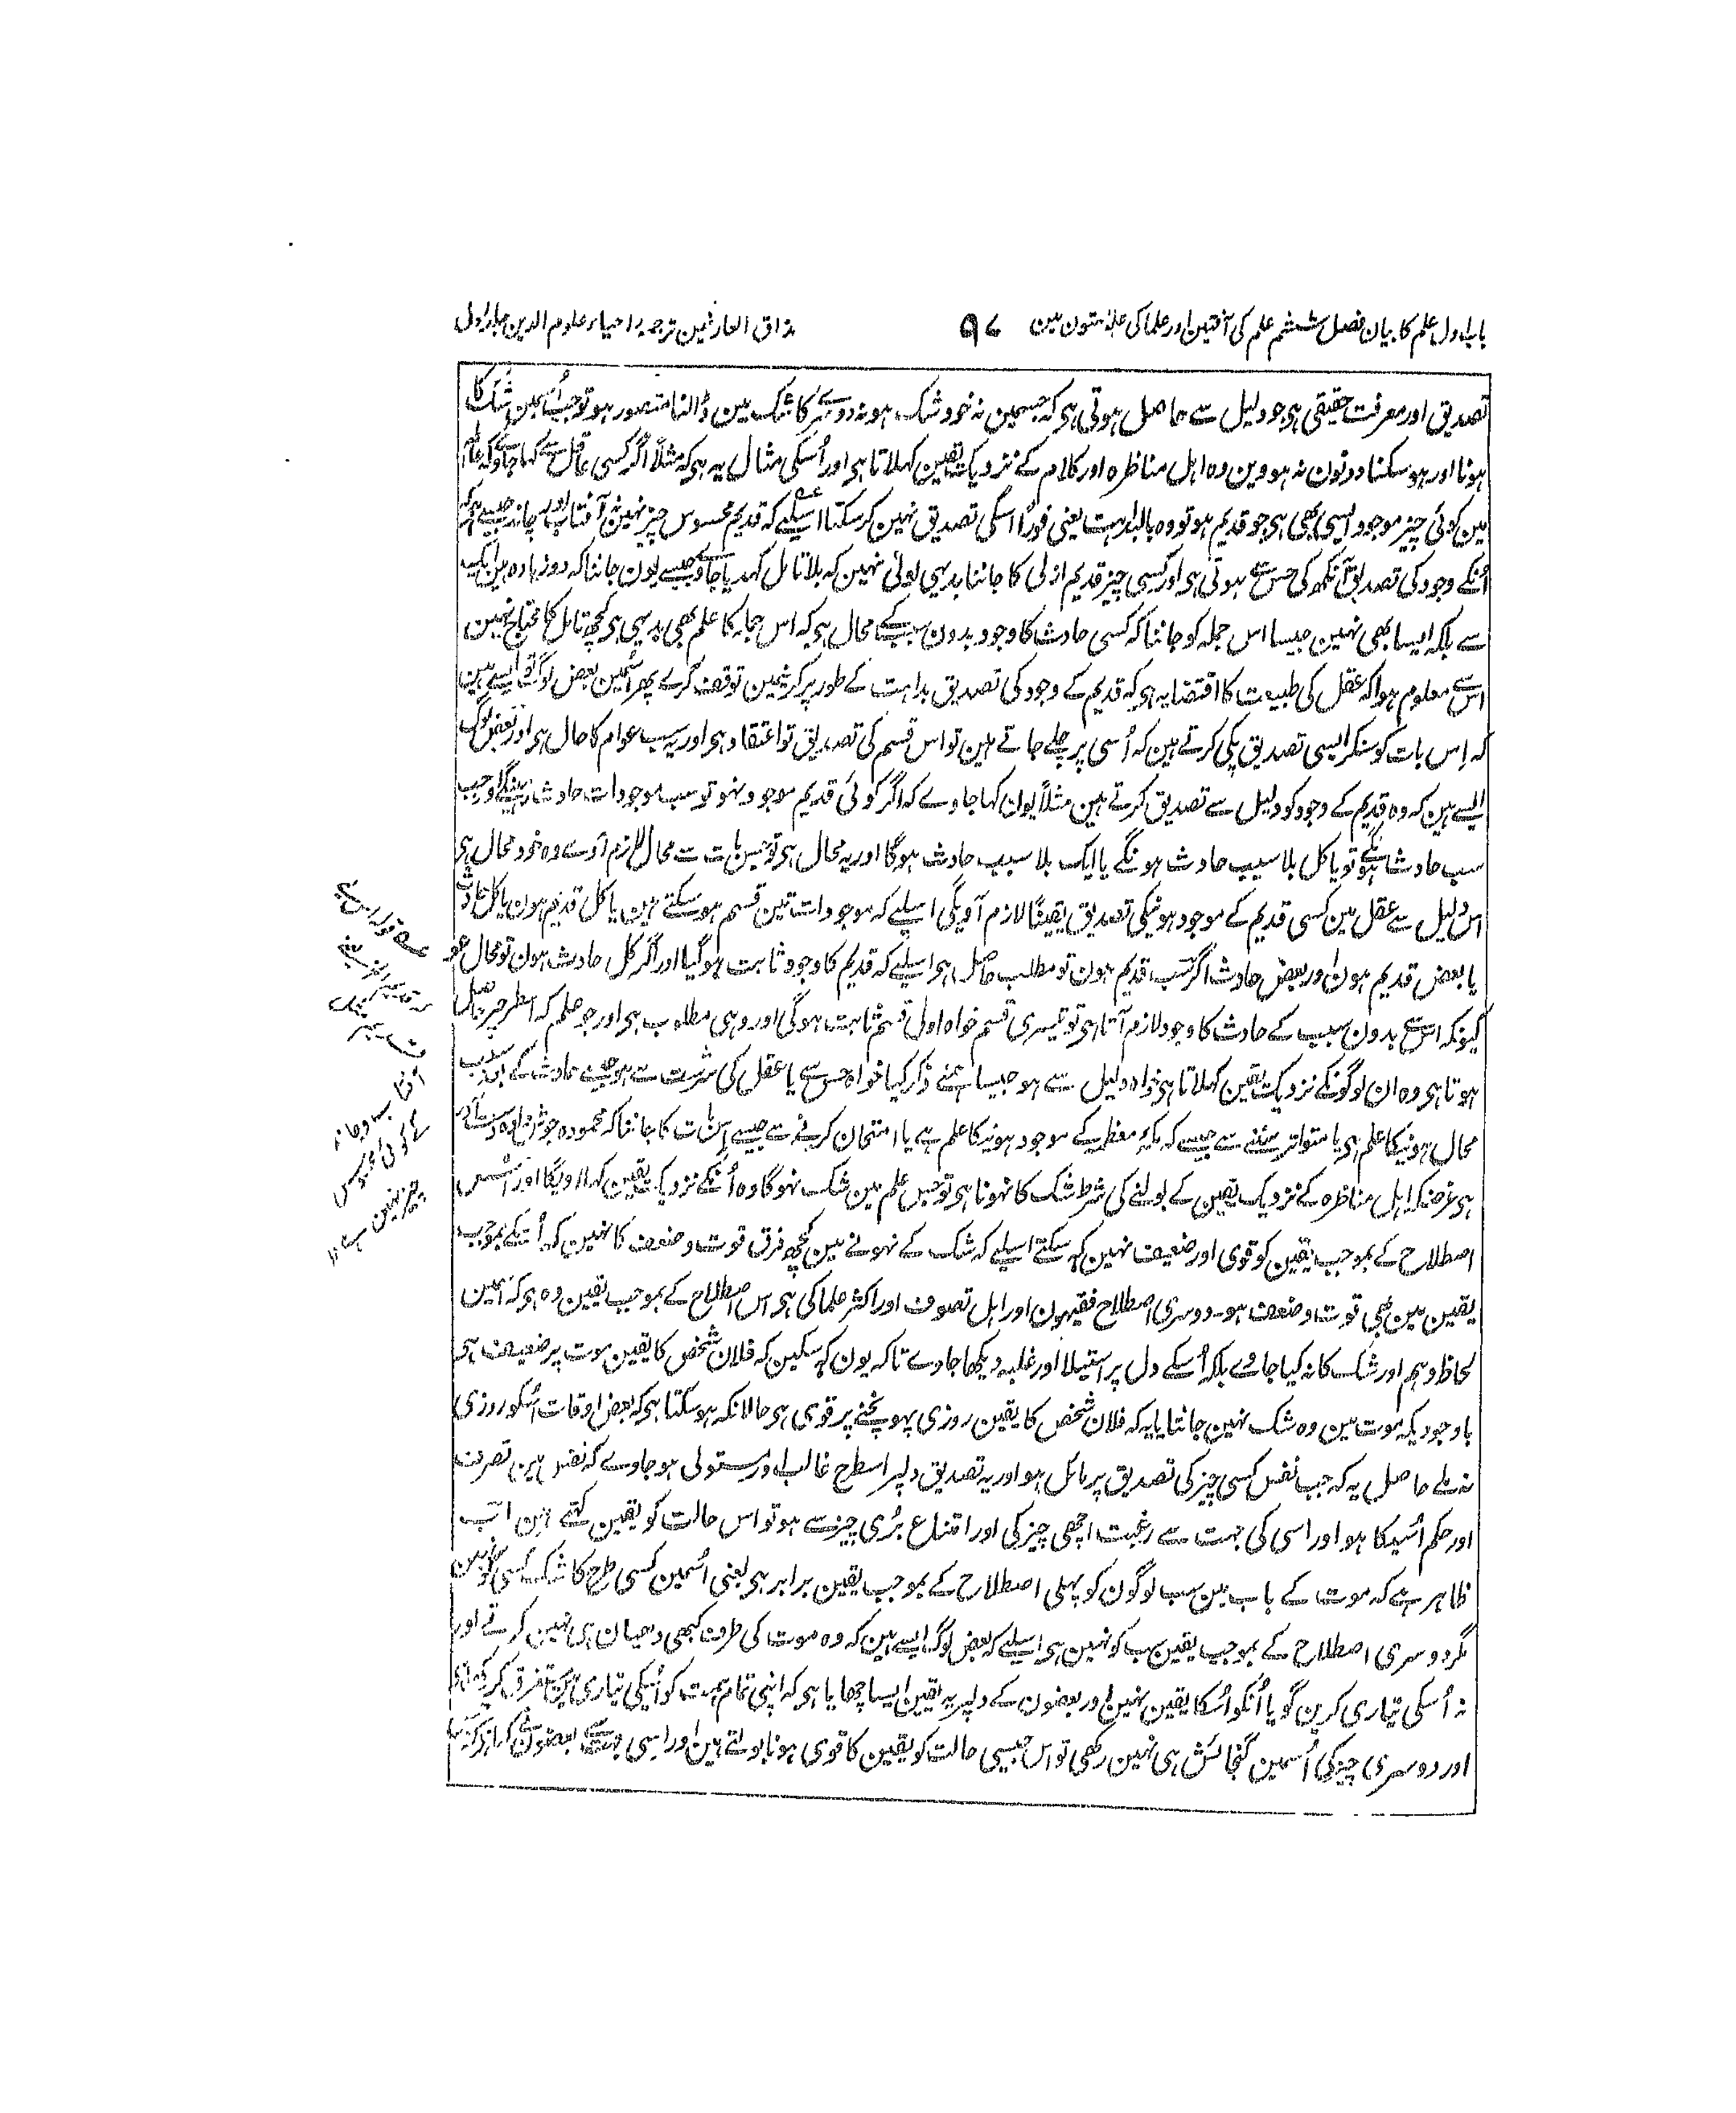 باب اول علم کا بیان فصل ششم علم کی آفتین اور علما کی علامتون مین ۹۷ مذاق العارفین ترجمہ احیاء علوم الدین جلد اول
تصدیق اور معرفت حقیقی ہی جو دلیل سے حاصل ہوتی ہی کہ جسمین نہ خود شک ہو نہ دوسرے کا شک مین ڈالنا متصور ہو تو جب اُسمین شک کا
ہونا اور ہو سکنا دونون نہ ہووین وہ اہل مناظرہ اور کلام کے نزدیک یقین کہلاتا ہی اور اُسکی مثال یہ ہی کہ مثلاً اگر کسی عاقل سے کہا جاوے کہ عالم
مین کوئی چیز موجود ایسی بھی ہی جو قدیم ہو تو وہ بالبداہت یعنی فوراً اسکی تصدیق نہین کر سکتا اسلیے کہ قدیم محسوس چیز نہین مثل آفتاب اور چاند جیسے نہ کہ
اُنکے وجود کی تصدیق آنکھ کی حس سے ہوتی ہی اور کسی چیز قدیم ازلی کا جاننا بدیہی اولی نہین کہ بلا تامل کہدیا جاوے جیسے یون جاننا کہ دو زیادہ ہین ایک
سے بلکہ ایسا بھی نہین جیسا اس جملہ کو جاننا کہ کسی حادث کا وجود بدون سبب کے محال ہی کہ اس جملہ کا علم بھی بدیہی ہی کچھ تامل کا محتاج نہین
اس سے معلوم ہوا کہ عقل کی طبیعت کا اقتضا یہ ہی کہ قدیم کے وجود کی تصدیق بداہت کے طور پر کرنیمین توقف کرے پھر اسمین بعض لوگ تو ایسے ہین
کہ اِس بات کو سنکر ایسی تصدیق پکی کرتے ہین کہ اُسی پر چلے جاتے ہین تو اس قسم کی تصدیق تو اعتقاد ہی اور یہ سب عوام کا حال ہی اور بعض لوگ
ایسے ہین کہ وہ قدیم کے وجود کو دلیل سے تصدیق کرتے ہین مثلاً یون کہا جاوے کہ اگر کوئی قدیم موجود نہو تو سب موجودات حادث رہینگے اور جب
سب حادث ہونگے تو یا کل بلا سبب حادث ہونگے یا ایک بلا سبب حادث ہوگا اور یہ محال ہی تو جس بات سے محال لازم آوے وہ خود محال ہی
اس دلیل سے عقل مین کسی قدیم کے موجود ہونیکی تصدیق یقیناً لازم آویگی اسلیے کہ موجودات تین قسم ہو سکتے ہین یا کل قدیم ہون یا کل حادث
یا بعض قدیم ہون اور بعض حادث اگر سب قدیم ہون تو مطلب حاصل ہی اسلیے کہ قدیم کا وجود ثابت ہو گیا اور اگر کل حادث ہون تو محال ہو
کیونکہ اس سے بدون سبب کے حادث کا وجود لازم آتا ہی تو تیسری قسم خواہ اول قسم ثابت ہوگی اور وہی مطلوب ہی اور جو علم کہ اسطرح پر حاصل
ہوتا ہی وہ ان لوگونکے نزدیک یقین کہلاتا ہی خواہ دلیل سے ہو جیسا ہمنے ذکر کیا خواہ حس سے یا عقل کی سرشت سے ہو جیسے حادث کے بے سبب
محال ہونیکا علم ہی یا متواتر سننے سے جیسے کہ مکہ معظمہ کے موجود ہونیکا علم ہے یا امتحان کرنے سے جیسے اس بات کا جاننا کہ محمودہ جوش دادہ دست آور
ہی غرضکہ اہل مناظرہ کے نزدیک یقین کے بولنے کی شرط شک کا نہونا ہی تو جس علم مین شک نہوگا وہ اُنکے نزدیک یقین کہلاویگا اور اس
اصطلاح کے بموجب یقین کو قوی اور ضعیف نہین کہہ سکتے اسلیے کہ شک کے نہونے مین کچھ فرق قوت و ضعف کا نہین کہ اُسکے بموجب
یقین مین بھی قوت و ضعف ہو۔ دوسری اصطلاح فقیہون اور اہل تصوف اور اکثر علما کی ہی اس اصطلاح کے بموجب یقین وہ ہی کہ جسمین
لحاظ وہم اور شک کا نہ کیا جاوے بلکہ اُسکے دل پر استیلا اور غلبہ دیکھا جاوے تاکہ یون کہہ سکین کہ فلان شخص کا یقین موت پر ضعیف ہی
باوجودیکہ موت مین وہ شک نہین جانتا یا یہ کہ فلان شخص کا یقین روزی پہونچنے پر قوی ہی حالانکہ ہو سکتا ہی کہ بعض اوقات اُسکو روزی
نہ ملے حاصل یہ کہ جب نفس کسی چیز کی تصدیق پر مائل ہو اور یہ تصدیق دلپر اسطرح غالب اور مستولی ہو جاوے کہ نفس مین تصرف
اور حکم اُسیکا ہو اور اسی کی جہت سے رغبت اچھی چیز کی اور امتناع بُری چیز سے ہو تو اس حالت کو یقین کہتے ہین اب
ظاہر ہے کہ موت کے باب مین سب لوگون کو پہلی اصطلاح کے بموجب یقین برابر ہی یعنی اُسمین کسی طرح کا شک کسی کو نہین
مگر دوسری اصطلاح کے بموجب یقین سب کو نہین ہی اسلیے کہ بعض لوگ ایسے ہین کہ وہ موت کی طرف کبھی دھیان ہی نہین کرتے اور
نہ اُسکی تیاری کرین گویا اُنکو اُسکا یقین نہین اور بعضون کے دلپر یہ یقین ایسا چھایا ہی کہ اپنی تمام ہمت کو اُسکی تیاری مین مستغرق کر
اور دوسری چیز کی اُسمین گنجائش ہی نہین رکھی تو اس جیسی حالت کو یقین کا قوی ہونا بولتے ہین اور اسی جہت سے بعضون نے کہا ہی کہ
آفتاب و چاند
کے کوئی محسوس
چیز نہین ہے ۱۲